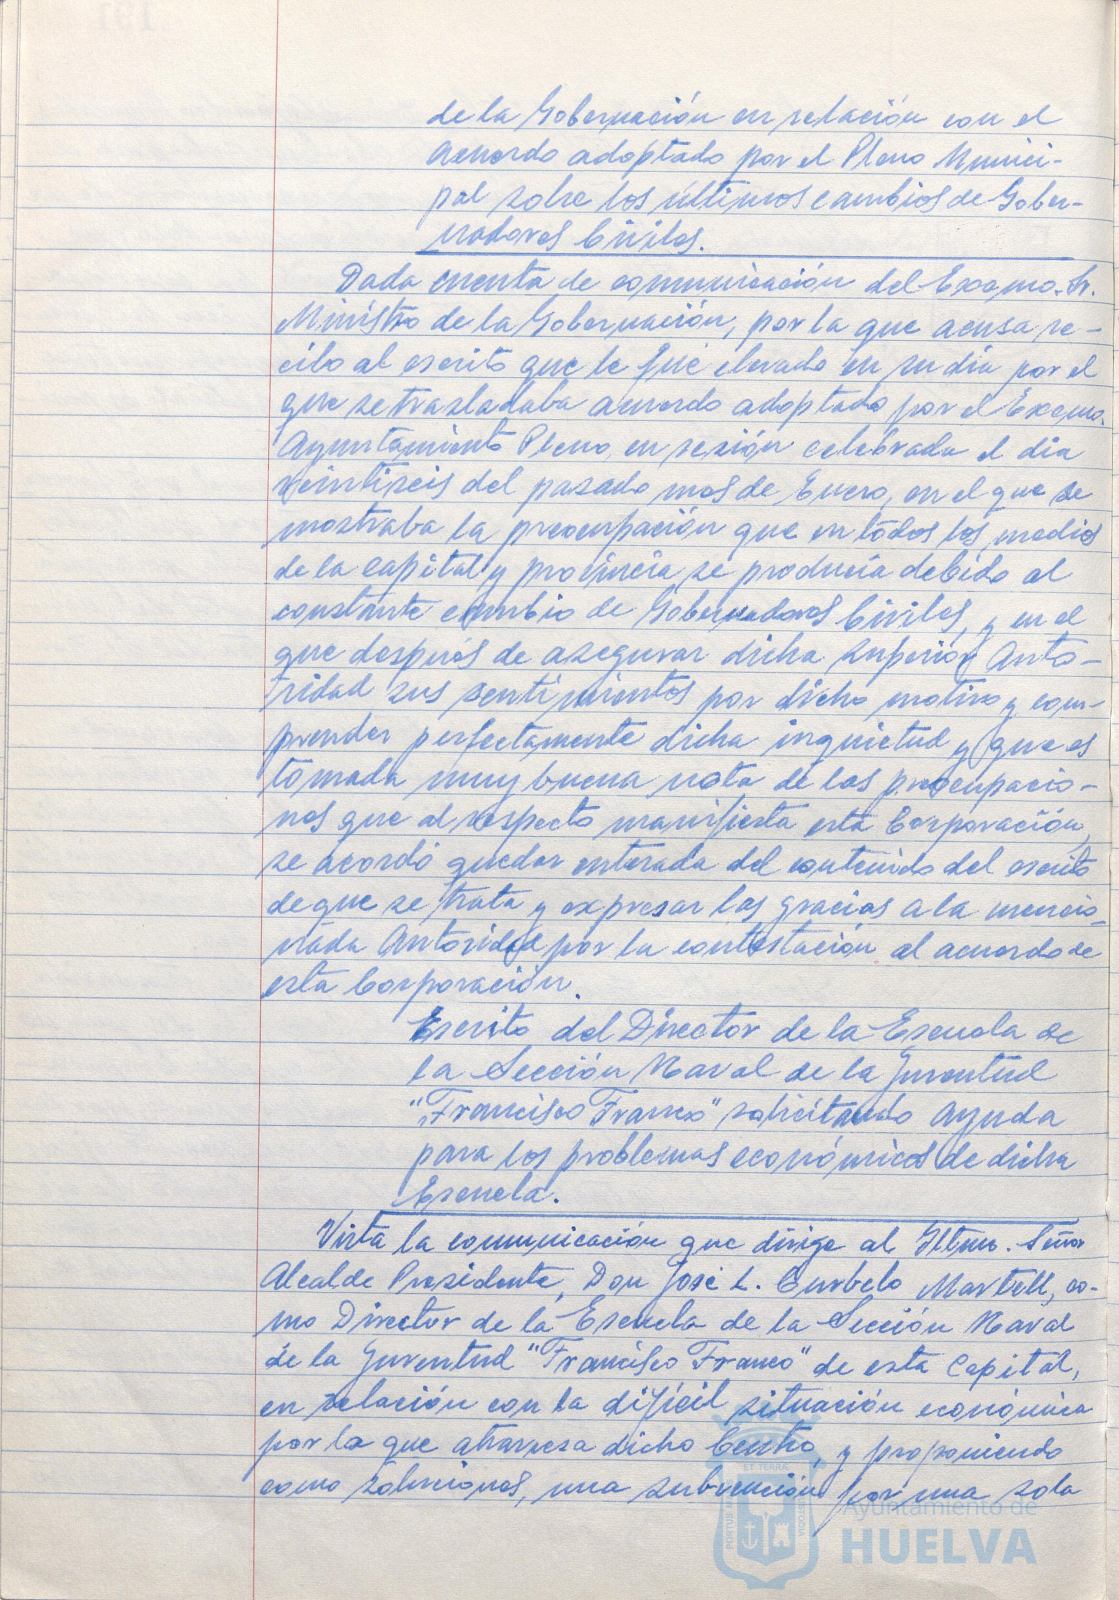 de la Gobernación en relación con el
acuerdo adoptado por el Pleno Munici-
pal sobre los últimos cambios de Gober-
nadores Civiles.
Dada cuenta de comunicación del Excmo. Sr.
Ministro de la Gobernación, por la que acusa re-
cibo al escrito que le fué elevado en su día por el
que se trasladaba acuerdo adoptado por el Excmo.
Ayuntamiento Pleno, en sesión celebrada el dia
veintiseis del pasado mes de Enero, en el que se
mostraba la preocupación que en todos los medios
de la capital y provincia, se producia debido al
constante cambio de Gobernadores Civiles, y en el
que después de asegurar dicha superior Auto-
ridad sus sentimientos por dicho motivo y com-
prender perfectamente dicha inquietud y que es
tomada muy buena nota de las preocupacio-
nes que al respecto manifiesta esta Corporación,
se acordó quedar enterada del contenido del escrito
de que se trata y expresar las gracias a la mencio-
nada Autoridad por la contestación al acuerdo de
esta Corporación.
Escrito del Director de la Escuela de
la Sección Naval de la Juventud
"Francisco Franco" solicitando ayuda
para los problemas económicos de dicha
Escuela.
Vista la comunicación que dirige al Iltmo. Señor
Alcalde Presidente, Don José L. Curbelo Martell, co-
mo Director de la Escuela de la Sección Naval
de la Juventud "Francisco Franco" de esta Capital,
en relación con la difícil situación económica
por la que atraviesa dicho Centro, y proponiendo
como soluciones, una subvención por una sola
Ayuntamiento de
HUELVA